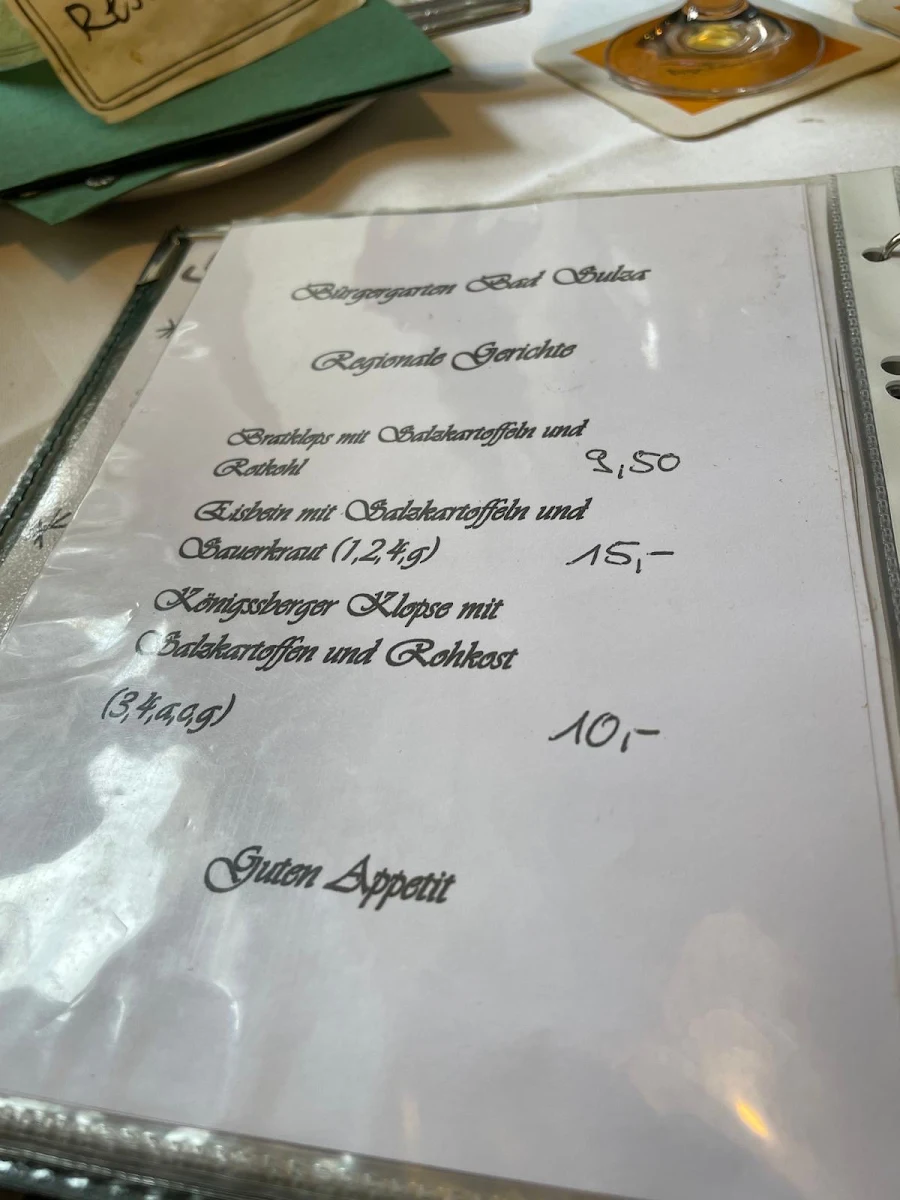 Bürgergarten Bad Sulza
Regionale Gerichte
Bratklops mit Salzkartoffeln und
Rotkohl 9,50
Eisbein mit Salzkartoffeln und
Sauerkraut (1,2,4,g) 15,-
Königssberger Klopse mit
Salzkartoffen und Rohkost
(3,4,a,c,g) 10,-
Guten Appetit